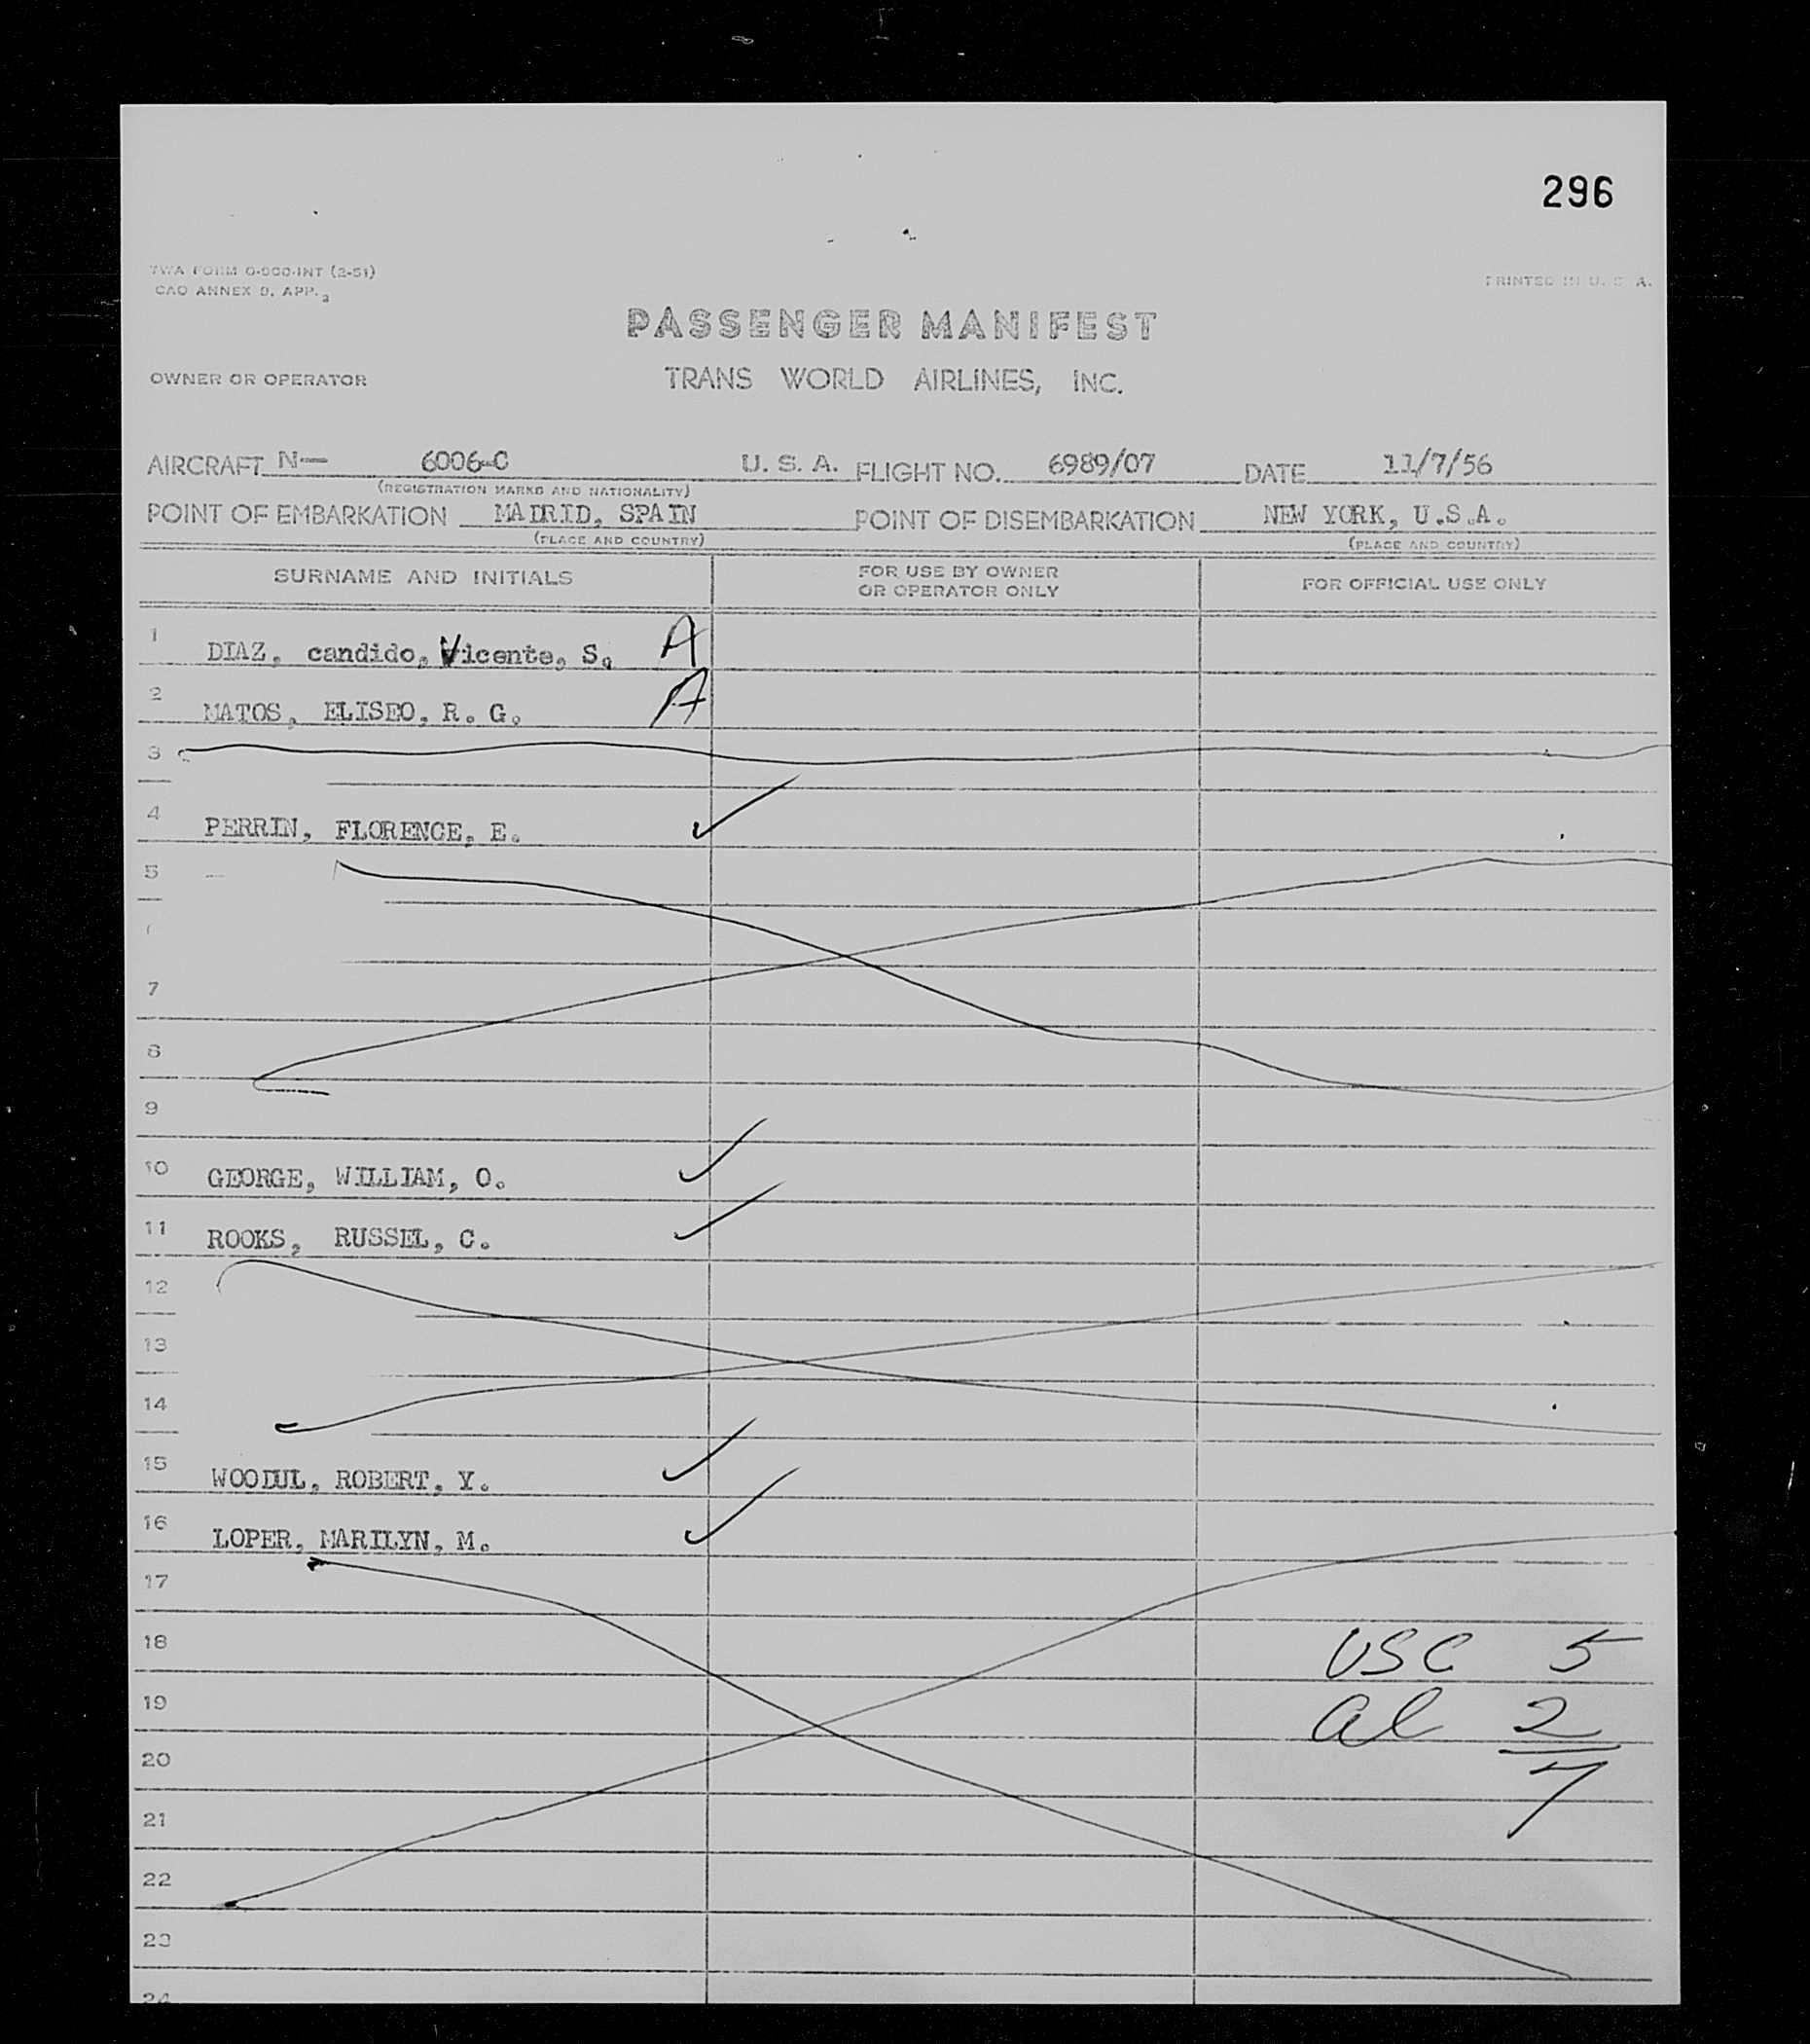 296
TWA FORM O-000-INT (2-51)
CAO ANNEX 9, APP. 3
PRINTED IN U. S. A.
PASSENGER MANIFEST
OWNER OR OPERATOR TRANS WORLD AIRLINES, INC.
AIRCRAFT N— 6006-C U. S. A. FLIGHT NO. 6989/07 DATE 11/7/56
(REGISTRATION MARKS AND NATIONALITY)
POINT OF EMBARKATION MADRID, SPAIN POINT OF DISEMBARKATION NEW YORK, U.S.A.
(PLACE AND COUNTRY) (PLACE AND COUNTRY)
SURNAME AND INITIALS FOR USE BY OWNER OR OPERATOR ONLY FOR OFFICIAL USE ONLY
1 DIAZ, candido, Vicente, S. A
2 MATOS, ELISEO, R. G. A
3
4 PERRIN, FLORENCE, E. ✓
5
7
8
9
10 GEORGE, WILLIAM, O. ✓
11 ROOKS, RUSSEL, C. ✓
12
13
14
15 WOODUL, ROBERT, Y. ✓
16 LOPER, MARILYN, M. ✓
17
18 USC 5
19 al 2
20 7
21
22
23
24